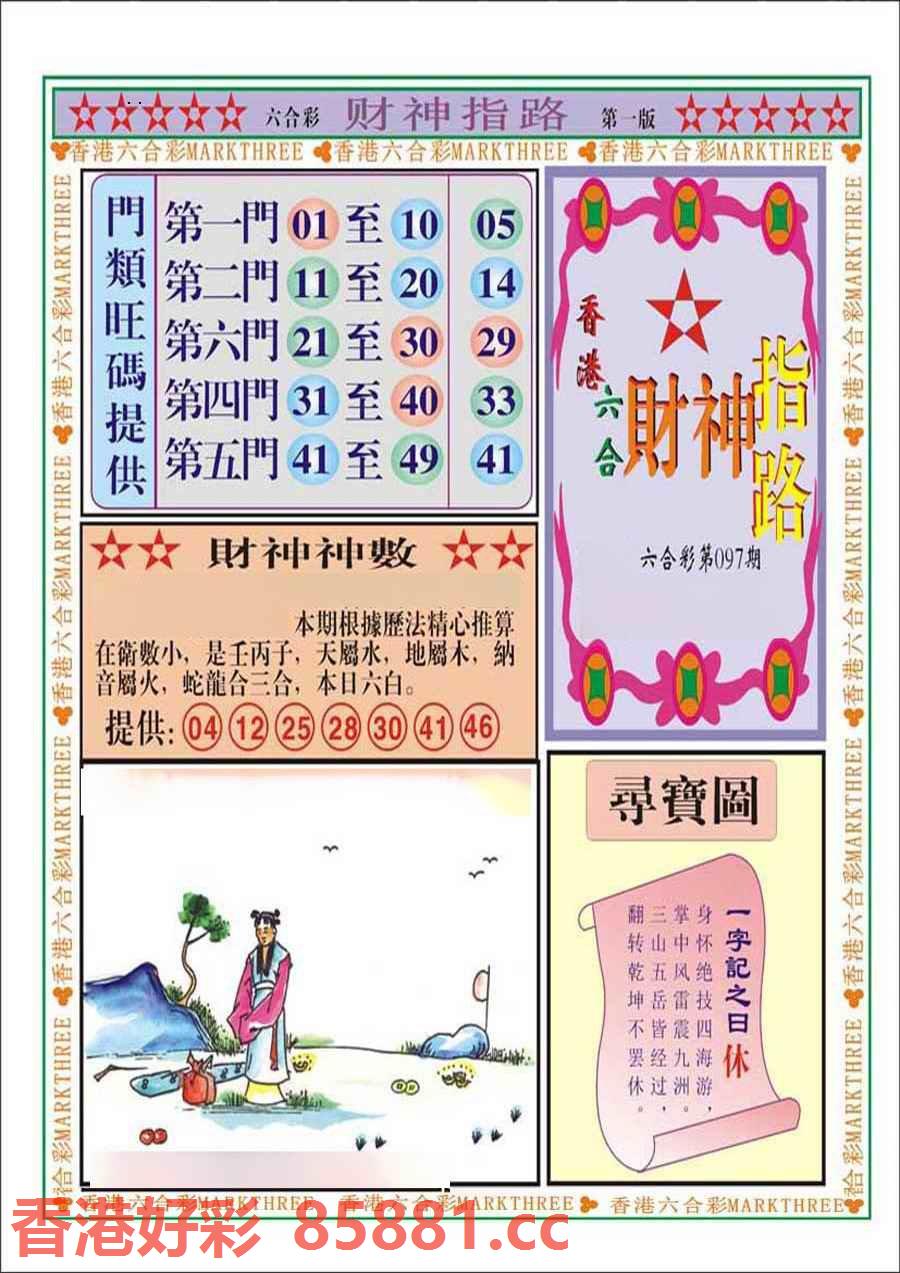 六合彩 财神指路 第一版
香港六合彩MARKTHREE 香港六合彩MARKTHREE 香港六合彩MARKTHREE
門類旺碼提供
第一門 01 至 10 05
第二門 11 至 20 14
第六門 21 至 30 29
第四門 31 至 40 33
第五門 41 至 49 41
香港六合
財神指路
六合彩第097期
財神神數
本期根據歷法精心推算
在術數小，是壬丙子，天屬水，地屬木，納
音屬火，蛇龍合三合，本日六白。
提供: 04 12 25 28 30 41 46
尋寶圖
一字記之日休
身怀绝技四海游，
掌中风雷震九洲。
三山五岳皆经过，
翻转乾坤不罢休。
香港六合彩MARKTHREE 香港六合彩MARKTHREE 香港六合彩MARKTHREE 合彩MARKTHREE
香港六合彩MARKTHREE 香港六合彩MARKTHREE 香港六合彩MARKTHREE 合彩MARKTHREE
香港六合彩MARKTHREE 香港六合彩MARKTHREE 香港六合彩MARKTHREE
香港好彩 85881.cc